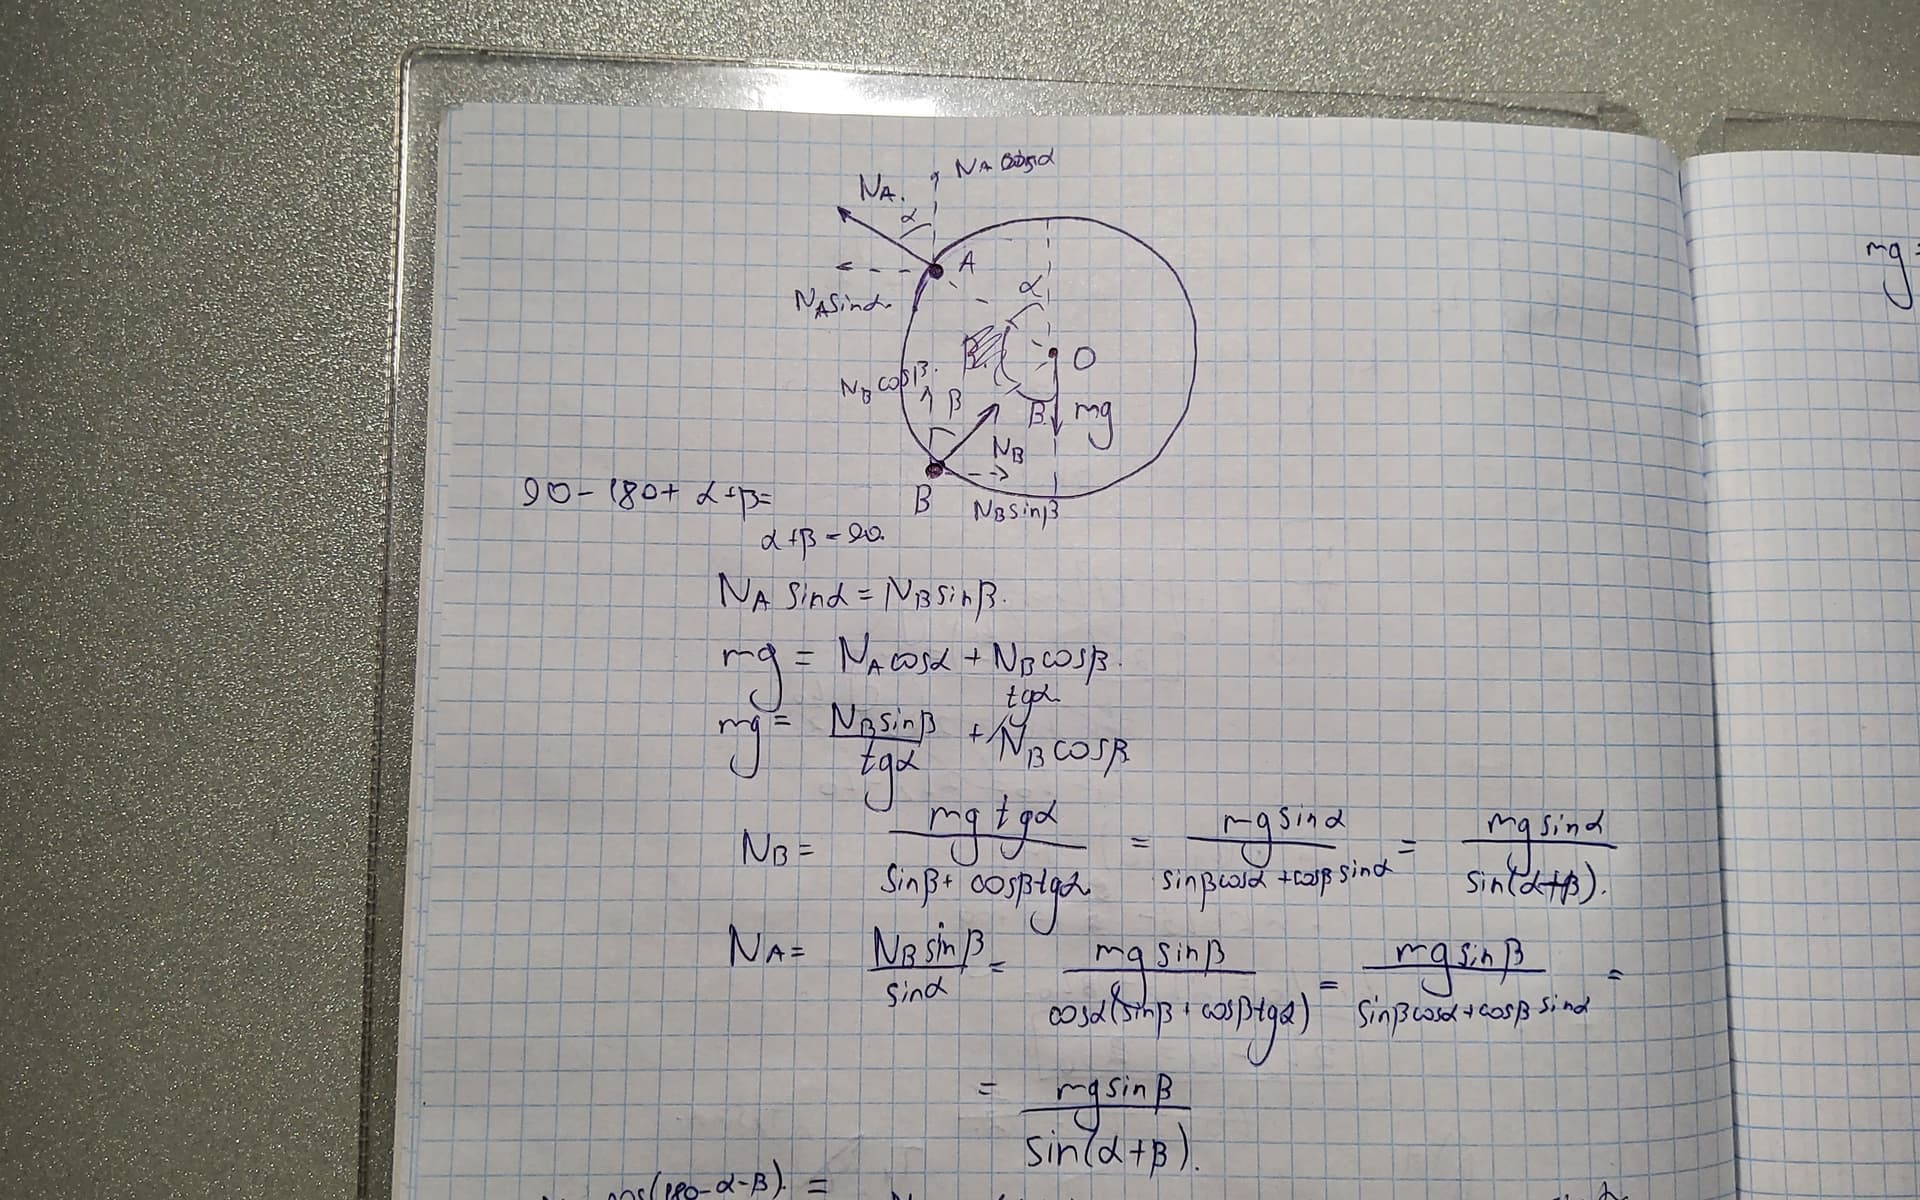 N_A cos α
N_A
α
A
N_A sin α
α
O
N_B cos β
β
β
mg
N_B
B
N_B sin β
90 - 180 + α + β =
α + β - 90.
N_A sin α = N_B sin β.
mg = N_A cos α + N_B cos β.
tg α
mg = N_B sin β / tg α + N_B cos β
N_B = mg tg α / (sin β + cos β tg α) = mg sin α / (sin β cos α + cos β sin α) = mg sin α / sin(α + β).
N_A = N_B sin β / sin α = mg sin β / (cos α (sin β + cos β tg α)) = mg sin β / (sin β cos α + cos β sin α) =
= mg sin β / sin(α + β).
cos(180 - α - β). =
mg =